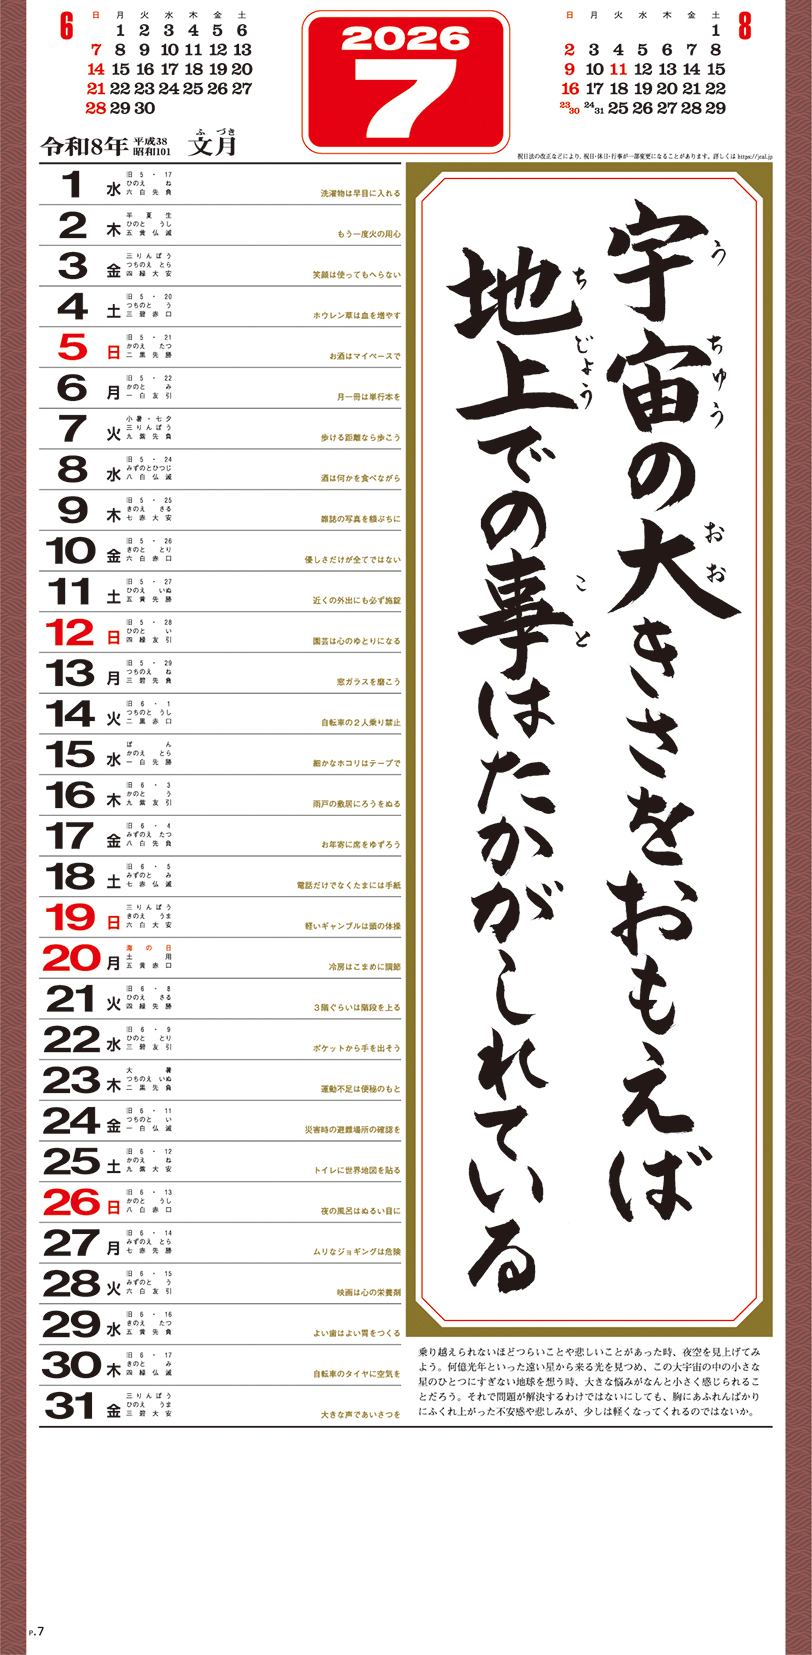 6
日 月 火 水 木 金 土
1 2 3 4 5 6
7 8 9 10 11 12 13
14 15 16 17 18 19 20
21 22 23 24 25 26 27
28 29 30
2026
7
8
日 月 火 水 木 金 土
1
2 3 4 5 6 7 8
9 10 11 12 13 14 15
16 17 18 19 20 21 22
23/30 24/31 25 26 27 28 29
令和8年 平成38 昭和101 文月 ふづき
祝日法の改正などにより、祝日・休日・行事が一部変更になることがあります。詳しくは https://jcal.jp
1 水 旧5・17 ひのえ ね 六白先負 洗濯物は早目に入れる
2 木 半夏生 ひのと うし 五黄仏滅 もう一度火の用心
3 金 三りんぼう つちのえ とら 四緑大安 笑顔は使ってもへらない
4 土 旧5・20 つちのと う 三碧赤口 ホウレン草は血を増やす
5 日 旧5・21 かのえ たつ 二黒先勝 お酒はマイペースで
6 月 旧5・22 かのと み 一白友引 月一冊は単行本を
7 火 小暑・七夕 三りんぼう 九紫先負 歩ける距離なら歩こう
8 水 旧5・24 みずのとひつじ 八白仏滅 酒は何かを食べながら
9 木 旧5・25 きのえ さる 七赤大安 雑誌の写真を額ぶちに
10 金 旧5・26 きのと とり 六白赤口 優しさだけが全てではない
11 土 旧5・27 ひのえ いぬ 五黄先勝 近くの外出にも必ず施錠
12 日 旧5・28 ひのと い 四緑友引 園芸は心のゆとりになる
13 月 旧5・29 つちのえ ね 三碧先負 窓ガラスを磨こう
14 火 旧6・1 つちのと うし 二黒赤口 自転車の2人乗り禁止
15 水 ぼん かのえ とら 一白先勝 細かなホコリはテープで
16 木 旧6・3 かのと う 九紫友引 雨戸の敷居にろうをぬる
17 金 旧6・4 みずのえ たつ 八白先負 お年寄に席をゆずろう
18 土 旧6・5 みずのと み 七赤仏滅 電話だけでなくたまには手紙
19 日 三りんぼう きのえ うま 六白大安 軽いギャンブルは頭の体操
20 月 海の日 土用 五黄赤口 冷房はこまめに調節
21 火 旧6・8 ひのえ さる 四緑先勝 3階ぐらいは階段を上る
22 水 旧6・9 ひのと とり 三碧友引 ポケットから手を出そう
23 木 大暑 つちのえ いぬ 二黒先負 運動不足は便秘のもと
24 金 旧6・11 つちのと い 一白仏滅 災害時の避難場所の確認を
25 土 旧6・12 かのえ ね 九紫大安 トイレに世界地図を貼る
26 日 旧6・13 かのと うし 八白赤口 夜の風呂はぬるい目に
27 月 旧6・14 みずのえ とら 七赤先勝 ムリなジョギングは危険
28 火 旧6・15 みずのと う 六白友引 映画は心の栄養剤
29 水 旧6・16 きのえ たつ 五黄先負 よい歯はよい胃をつくる
30 木 旧6・17 きのと み 四緑仏滅 自転車のタイヤに空気を
31 金 三りんぼう ひのえ うま 三碧大安 大きな声であいさつを
宇宙の大きさをおもえば
う ちゅう おお
地上での事はたかがしれている
ち じょう こと
乗り越えられないほどつらいことや悲しいことがあった時、夜空を見上げてみ
よう。何億光年といった遠い星から来る光を見つめ、この大宇宙の中の小さな
星のひとつにすぎない地球を想う時、大きな悩みがなんと小さく感じられるこ
とだろう。それで問題が解決するわけではないにしても、胸にあふれんばかり
にふくれ上がった不安感や悲しみが、少しは軽くなってくれるのではないか。
P.7